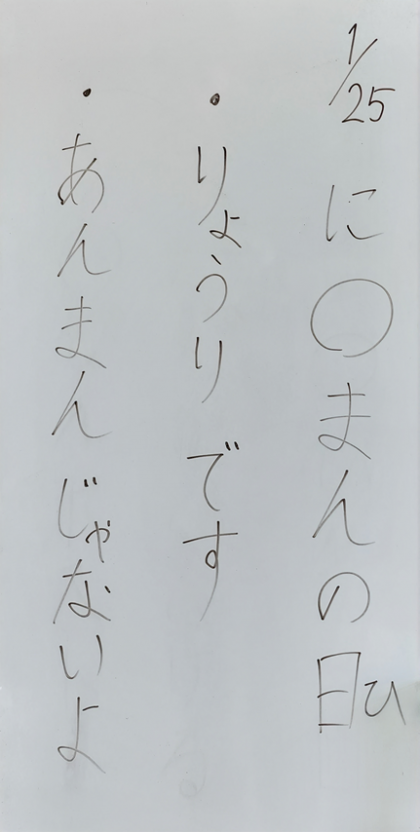 1/25 に〇まんの日ひ
・りょうりです
・あんまんじゃないよ